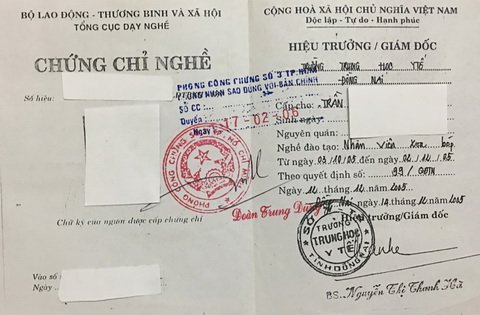 BỘ LAO ĐỘNG - THƯƠNG BINH VÀ XÃ HỘI
TỔNG CỤC DẠY NGHỀ
CHỨNG CHỈ NGHỀ
Số hiệu:
PHÒNG CÔNG CHỨNG SỐ 3 TP.HCM
CHỨNG NHẬN SAO ĐÚNG VỚI BẢN CHÍNH
SỐ CC:
Quyển
Ngày
17-02-06
Đoàn Trung Dũng
Chữ ký của người được cấp chứng chỉ
Vào sổ
Ngày
CỘNG HOÀ XÃ HỘI CHỦ NGHĨA VIỆT NAM
Độc lập - Tự do - Hạnh phúc
HIỆU TRƯỞNG / GIÁM ĐỐC
TRƯỜNG TRUNG HỌC Y TẾ
ĐỒNG NAI
Cấp cho: TRẦN
Sinh ngày
Nguyên quán:
Nghề đào tạo: Nhân viên Xoa bóp
Từ ngày 03/10/05 đến ngày 04/11/05
Theo quyết định số: 99/ QĐTN
Ngày 14 tháng 11 năm 2005
Đồng Nai, ngày 14 tháng 11 năm 2005
Hiệu trưởng/Giám đốc
TRƯỜNG
TRUNG HỌC
Y TẾ
TỈNH ĐỒNG NAI
BS. Nguyễn Thị Thanh Hà